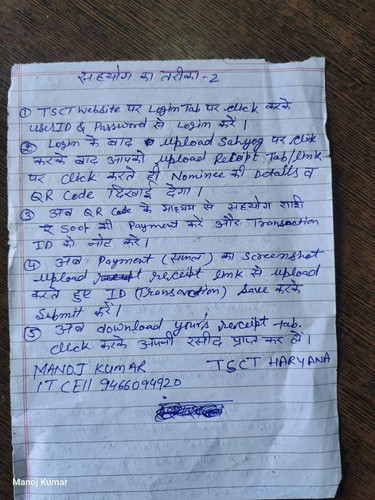 सहयोग का तरीका - 2
① TSCT website पर Login Tab पर click करके
userID & Password से Login करें।
② Login के बाद upload Sahyog पर click
करके बाद आपको upload Receipt Tab/link
पर click करते ही Nominee की Details व
QR Code दिखाई देगा।
③ अब QR Code के माध्यम से सहयोग राशि
की Payment करें और Transaction
ID को नोट करें।
④ अब Payment का Screenshot
upload receipt link से upload
करते हुए ID (Transaction) Save करके
Submit करें।
⑤ अब download your's receipt tab.
click करके अपनी रसीद प्राप्त कर लें।
MANOJ KUMAR TSCT HARYANA
IT CEll 9466094920
Manoj Kumar